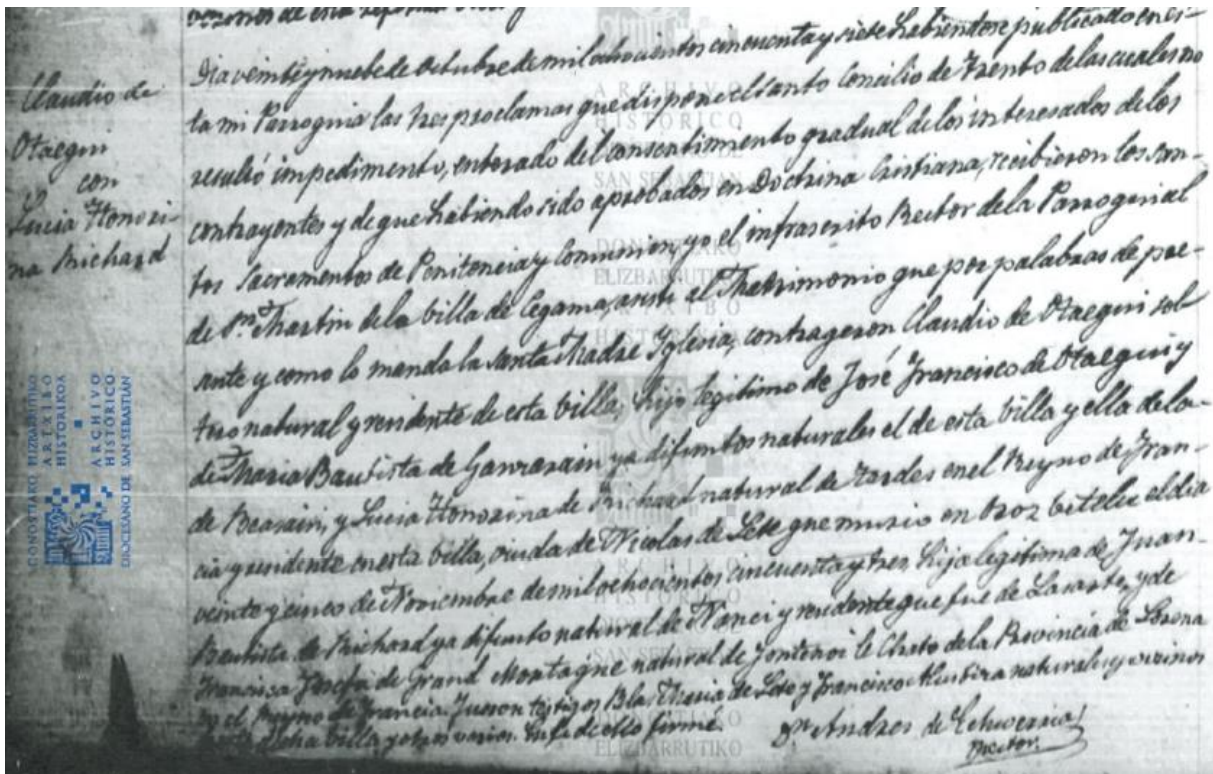 Claudio de
Otaegui
con
Lucia Honori-
na Richard
Dia veinte y nuebe de Octubre de mil ochocientos cincuenta y siete habiendose publicado en es-
ta mi Parroquia las tres proclamas que dispone el santo Concilio de Trento de las cuales no
resultó impedimento, enterado del consentimiento gradual de los interesados de los
contrayentes y de que habiendo sido aprobados en Doctrina Cristiana, recibieron los san-
tos Sacramentos de Penitencia y Comunion, yo el infrascrito Rector de la Parroquial
de Sn. Martin de la villa de Cegama, asisti al Matrimonio que por palabras de pre-
sente y como lo manda la santa Madre Iglesia, contrageron Claudio de Otaegui sol-
tero natural y residente de esta villa, hijo legitimo de José Francisco de Otaegui y
de Maria Bautista de ya difuntos naturales el de esta villa y ella de la
de Beasain, y Lucia Honorina de Richard natural de en el Reyno de Fran-
cia y residente en esta villa, viuda de Nicolas de que murio en Oroz betelu el dia
veinte y cinco de Noviembre de mil ochocientos cincuenta y tres, hija legitima de Juan
Bautista de Richard ya difunto natural de Nanci y residente que fue de Lasarte, y de
Francisca Josefa de Grand Montagne natural de Fontenoi le Chato de la Provincia de Lorena
en el Reyno de Francia. Fueron testigos Blas Maria de y Francisco naturales y vecinos
de esta dicha villa y otros varios. En fe de ello firmé.
Dn Andres de Echeverria
Rector
DONOSTIAKO ELIZBARRUTIKO
ARTXIBO
HISTORIKOA
ARCHIVO
HISTÓRICO
DIOCESANO DE SAN SEBASTIAN